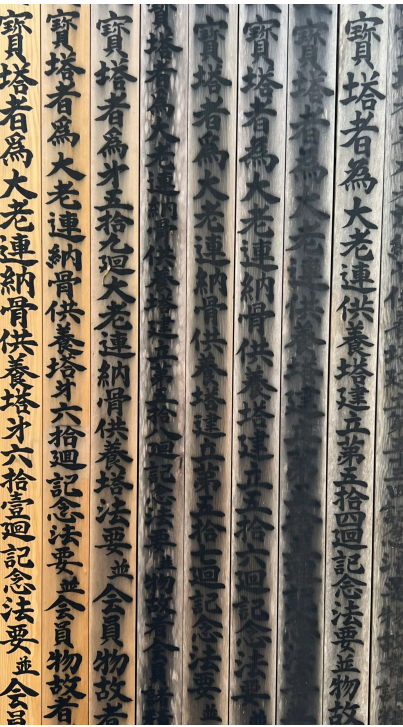 寶塔者為大老連供養塔建立第五拾四廻記念法要並物故
寶塔者為大老連供養塔建立
寶塔者為大老連納骨供養塔建立五拾六廻記念法要並
寶塔者為大老連納骨供養塔建立第五拾七廻記念法要並
寶塔者爲大老連納骨供養塔建立第五拾八廻記念法要並物故者会員
寶塔者爲才五拾九廻大老連納骨供養塔法要並会員物故者
寶塔者爲大老連納骨供養塔才六拾廻記念法要並会員物故者
寶塔者爲大老連納骨供養塔才六拾壹廻記念法要並会員